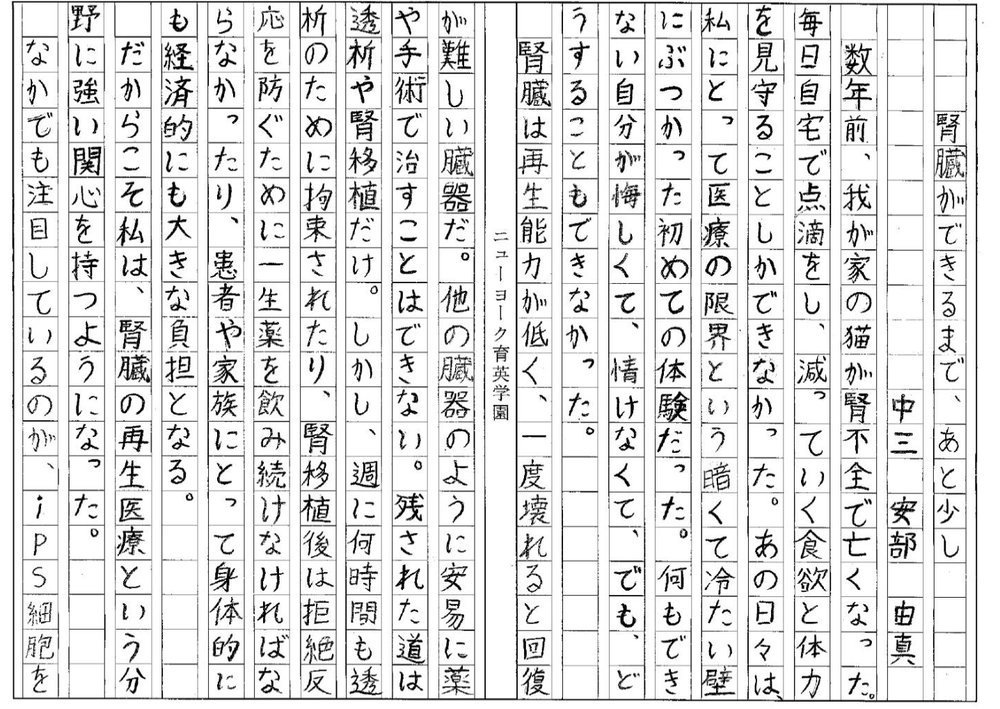 腎臓ができるまで、あと少し
中三　安部　由真
数年前、我が家の猫が腎不全で亡くなった。
毎日自宅で点滴をし、減っていく食欲と体力
を見守ることしかできなかった。あの日々は、
私にとって医療の限界という暗くて冷たい壁
にぶつかった初めての体験だった。何もでき
ない自分が悔しくて、情けなくて、でも、ど
うすることもできなかった。
腎臓は再生能力が低く、一度壊れると回復
ニューヨーク育英学園
が難しい臓器だ。他の臓器のように安易に薬
や手術で治すことはできない。残された道は
透析や腎移植だけ。しかし、週に何時間も透
析のために拘束されたり、腎移植後は拒絶反
応を防ぐために一生薬を飲み続けなければな
らなかったり、患者や家族にとって身体的に
も経済的にも大きな負担となる。
だからこそ私は、腎臓の再生医療という分
野に強い関心を持つようになった。
なかでも注目しているのが、iPS細胞を